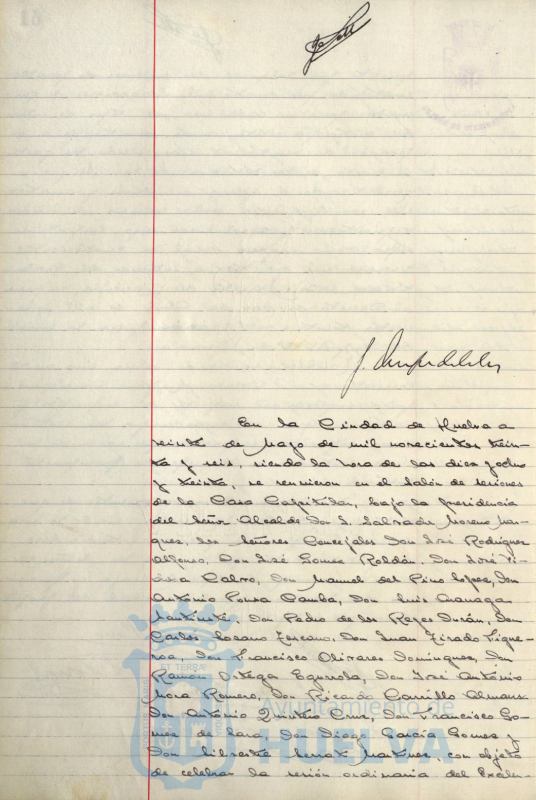 En la Ciudad de Huelva a
veinte de Mayo de mil novecientos trein-
ta y seis, siendo la hora de las diez y ocho
y treinta, se reunieron en el Salón de sesiones
de la Casa Capitular, bajo la presidencia
del Señor Alcalde Don S. Salvador Moreno Mar-
quez, los Señores Concejales Don José Rodriguez
Alfonso, Don José Gomez Roldán, Don José
Calvo, Don Manuel del Pino Lopez, Don
Antonio Ponsa Camba, Don Luis
Don Pedro de los Reyes Durán, Don
Carlos Lozano Don Juan Tirado Figue-
roa, Don Francisco Olivares Dominguez, Don
Ramon Ortega Don José Antonio
Mora Romero, Don Ricardo Carrillo Almans
Don Antonio Quintero Cruz, Don Francisco Go-
mez de Lara, Don Diego García Gomez y
Don Martinez, con objeto
de celebrar la sesión ordinaria del Excelen-
ET TERRAE
Ayuntamiento de
HUELVA